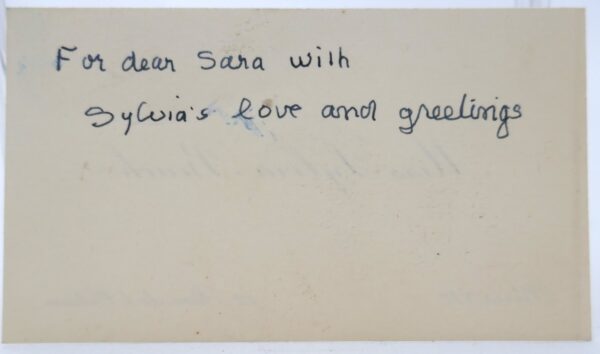 For dear Sara with
Sylvia's love and greetings